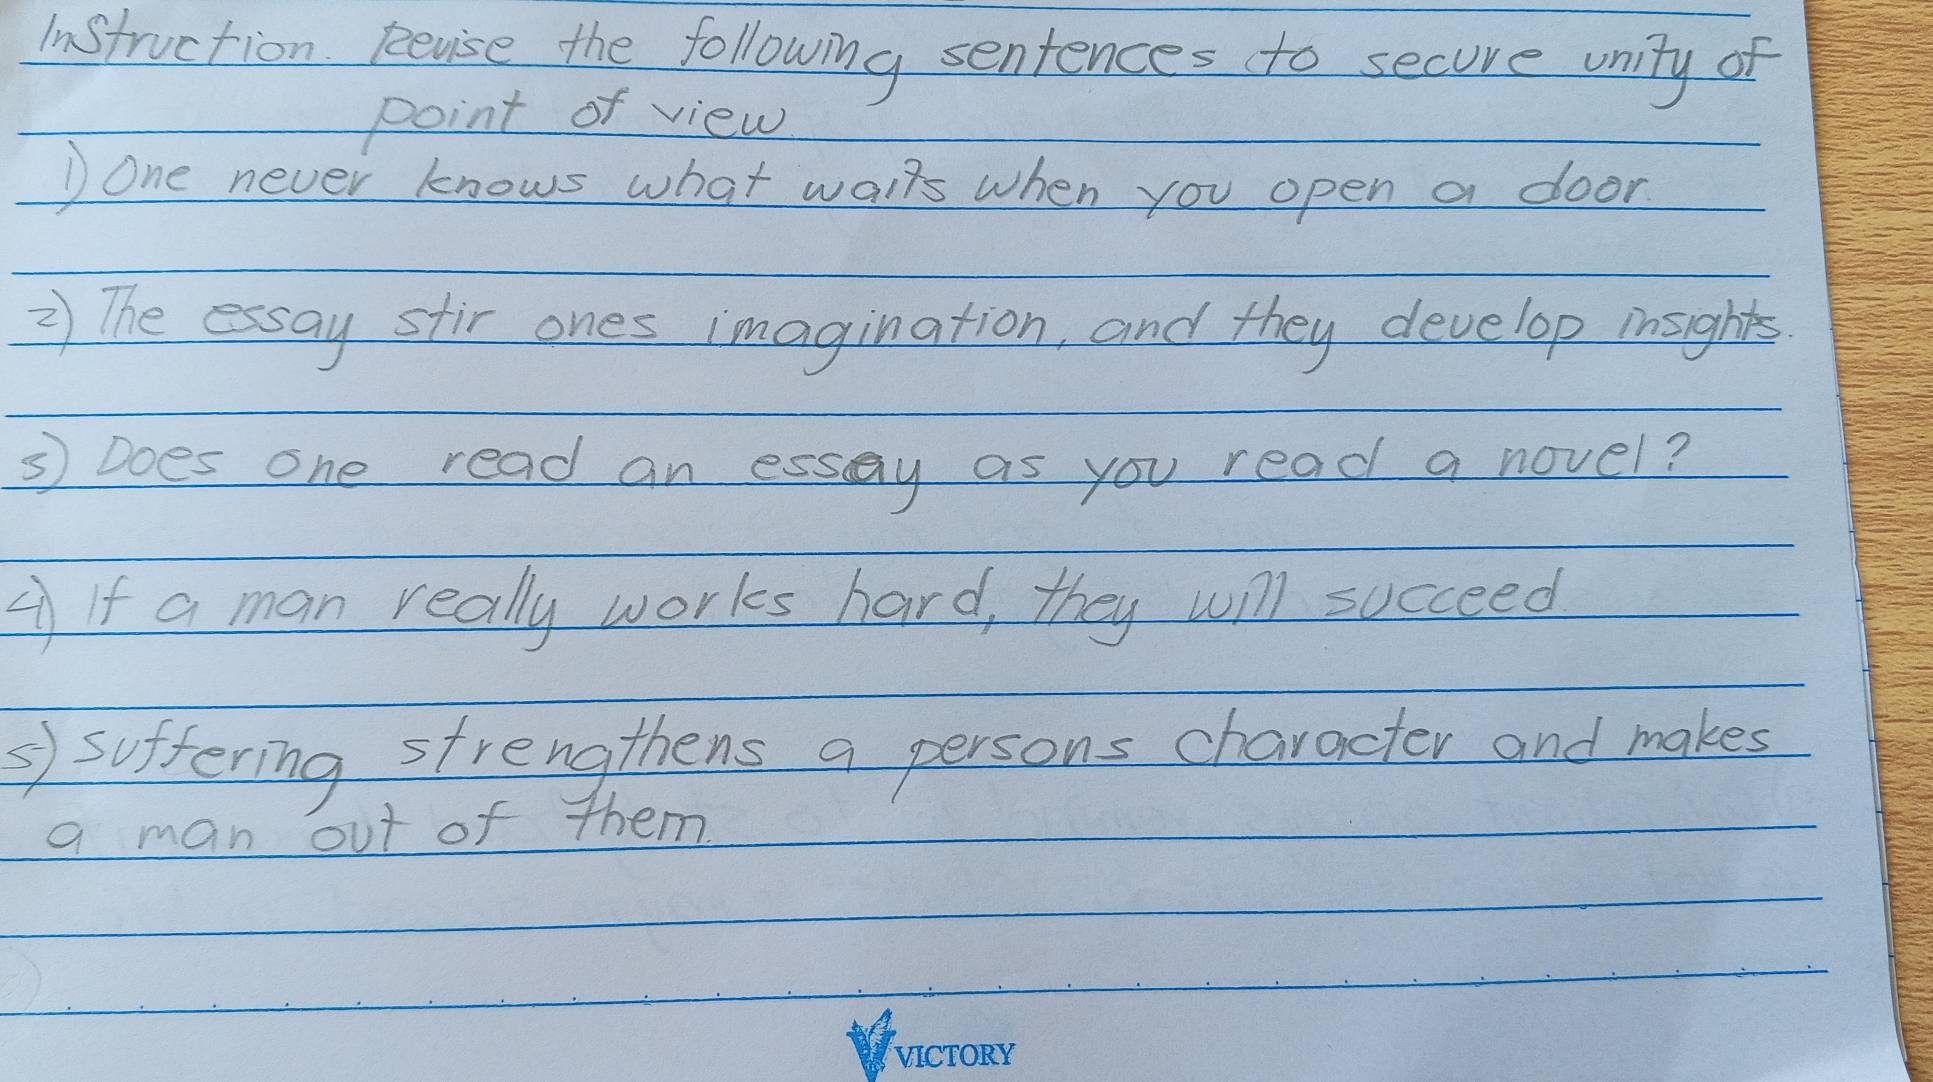 Instruction. Revise the following sentences to secure unity of
point of view.
1) One never knows what waits when you open a door.
2) The essay stir ones imagination, and they develop insights.
3) Does one read an essay as you read a novel?
4) If a man really works hard, they will succeed.
5) suffering strengthens a persons character and makes
a man out of them.
VICTORY